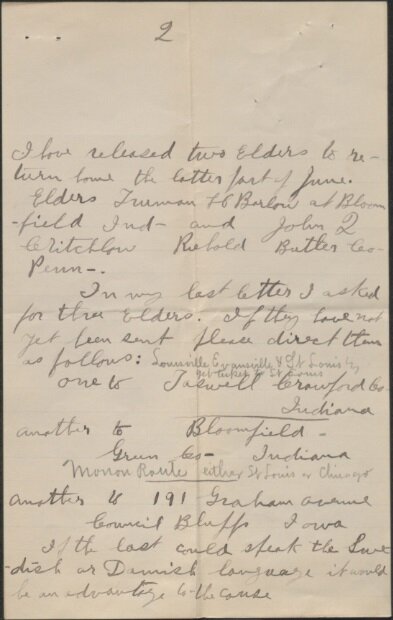 2
I have released two Elders to re-
turn home the latter part of June.
Elders Truman H Barlow at Bloom
-field Ind- and John Q
Critchlow Riebold Butler Co-
Penn-.
In my last letter I asked
for three Elders. If they have not
yet been sent please direct them
as follows: Louisville Evansville & St Louis Ry
get ticket to St Louis
one to Taswell Crawford Co
Indiana
another to Bloomfield-
Green Co- Indiana
Monon Route either St Louis or Chicago
another to 191 Graham avenue
Council Bluffs Iowa
If the last could speak the Swe
-dish or Danish language it would
be an advantage to the cause